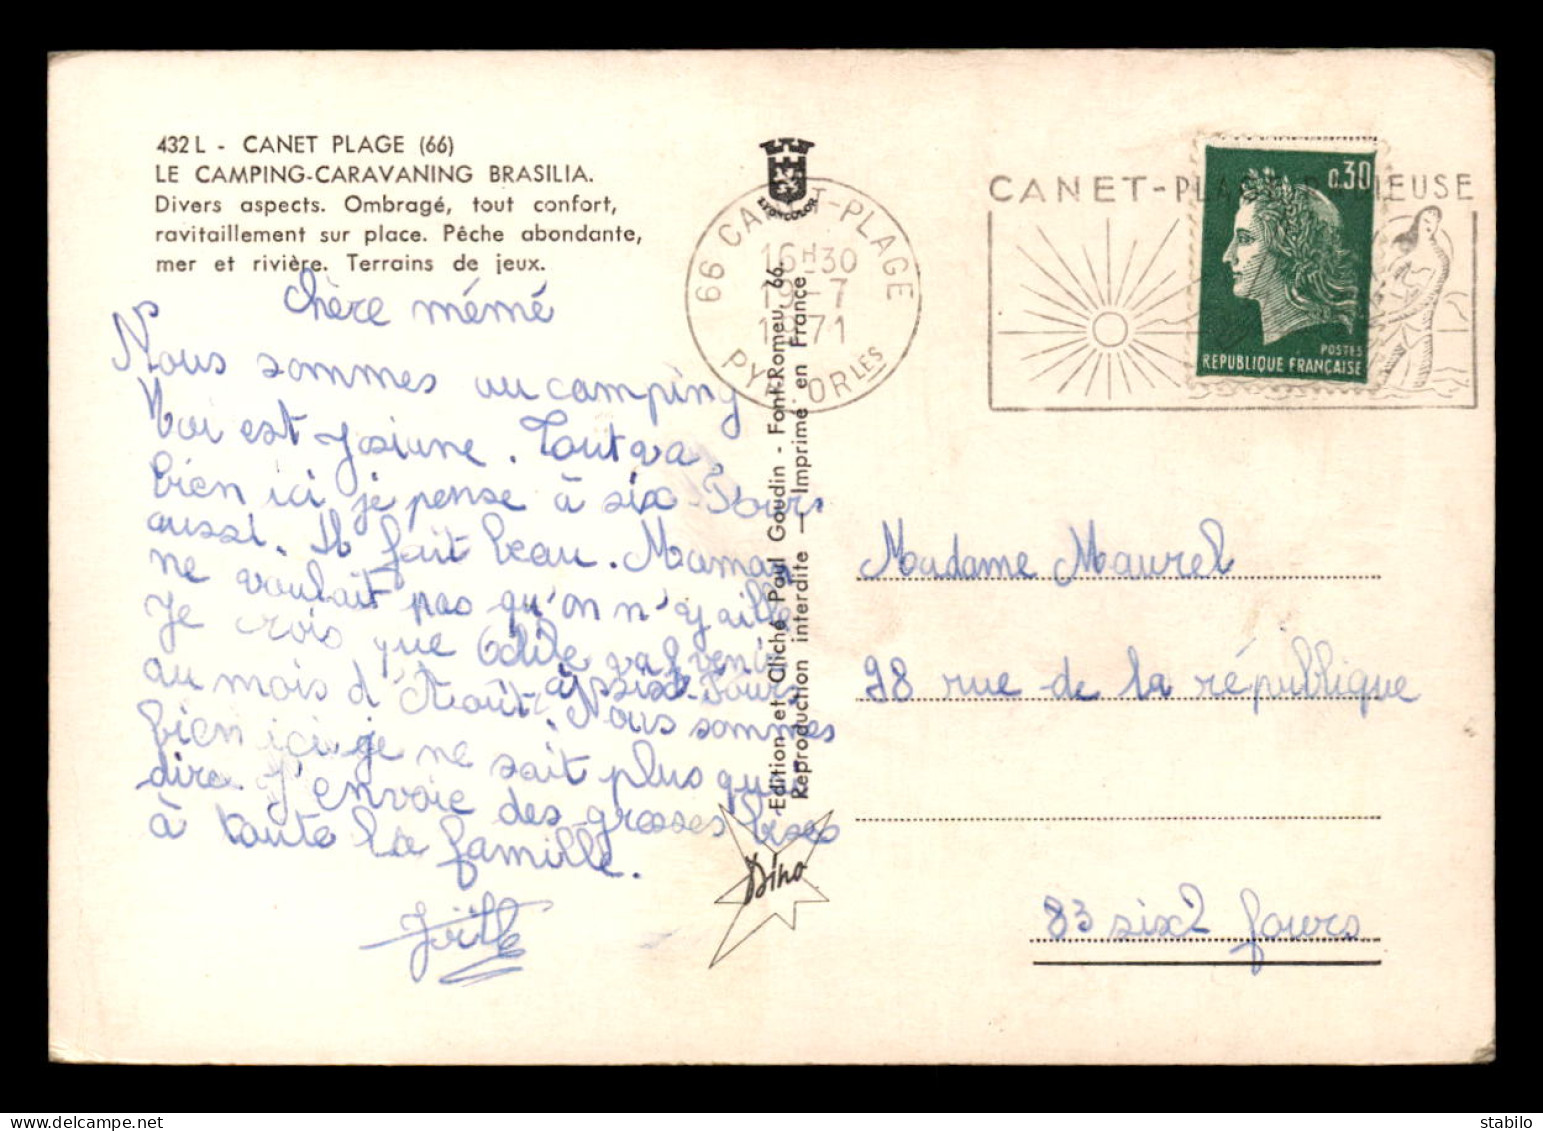 432 L - CANET PLAGE (66)
LE CAMPING-CARAVANING BRASILIA.
Divers aspects. Ombragé, tout confort,
ravitaillement sur place. Pêche abondante,
mer et rivière. Terrains de jeux.
chère mémé
Nous sommes au camping
est Josiane. Tout va
bien ici je pense à six-Fours
aussi. Il fait beau. Maman
ne voulait pas qu'on n'y aille
Je crois que Odile va venir
à six-Fours
au mois d'Août. Nous sommes
bien ici je ne sait plus quoi
dire. J'envoie des grosses bises
à toute la famille.
Joëlle
LYONCOLOR
66 CANET-PLAGE
16H30
19-7
1971
PYR. ORLES
CANET-PLAGE
0,30
POSTES
REPUBLIQUE FRANÇAISE
Edition et Cliché Paul Goudin - Font-Romeu, 66.
Reproduction interdite — Imprimé en France
Dino
Madame Maurel
98 rue de la république
83 six2 fours
stabilo